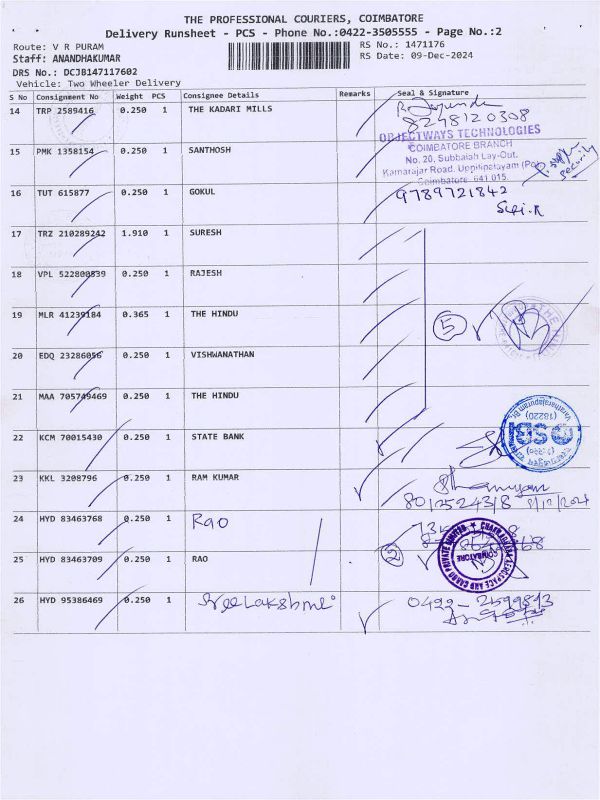 THE PROFESSIONAL COURIERS, COIMBATORE
Delivery Runsheet - PCS - Phone No.:0422-3505555 - Page No.:2
Route: V R PURAM RS No.: 1471176
Staff: ANANDHAKUMAR RS Date: 09-Dec-2024
DRS No.: DCJB147117602
Vehicle: Two Wheeler Delivery
S No Consignment No Weight PCS Consignee Details Remarks Seal & Signature
14 TRP 2589416 0.250 1 THE KADARI MILLS
8248120308
OBJECTWAYS TECHNOLOGIES
COIMBATORE BRANCH
15 PMK 1358154 0.250 1 SANTHOSH
No. 20, Subbaiah Lay-Out,
Kamarajar Road, Uppilipalayam (Po)
Coimbatore- 641 015.
Security
16 TUT 615877 0.250 1 GOKUL 9789721842
17 TRZ 210289242 1.910 1 SURESH
18 VPL 522800839 0.250 1 RAJESH
19 MLR 41239184 0.365 1 THE HINDU
5
20 EDQ 23286056 0.250 1 VISHWANATHAN
21 MAA 705749469 0.250 1 THE HINDU
22 KCM 70015430 0.250 1 STATE BANK
(18220)
23 KKL 3208796 0.250 1 RAM KUMAR
8013524318 9/12/2024
24 HYD 83463768 0.250 1 Rao
25 HYD 83463709 0.250 1 RAO
2
COIMBATORE
26 HYD 95386469 0.250 1 Sree Lakshmi 0422-2599893